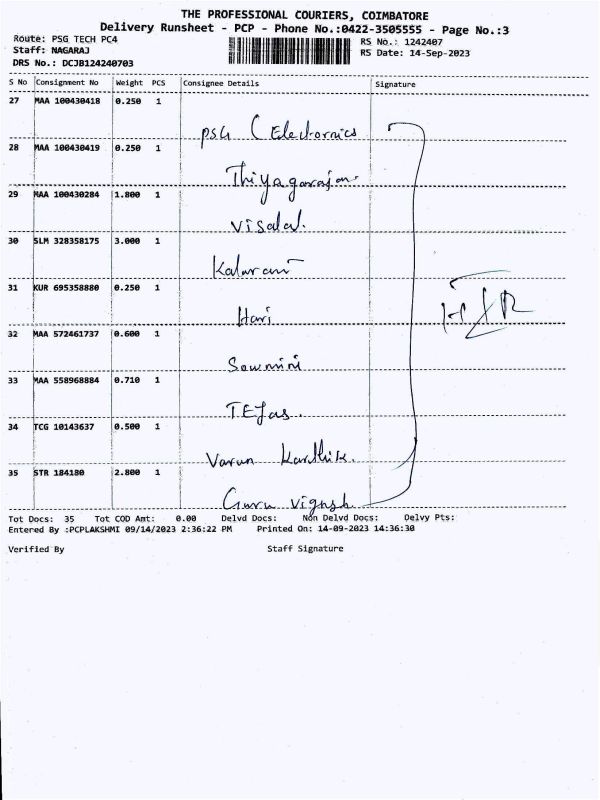 THE PROFESSIONAL COURIERS, COIMBATORE
Delivery Runsheet - PCP - Phone No.:0422-3505555 - Page No.:3
Route: PSG TECH PC4 RS No.: 1242407
Staff: NAGARAJ RS Date: 14-Sep-2023
DRS No.: DCJB124240703
S No Consignment No Weight PCS Consignee Details Signature
27 MAA 100430418 0.250 1
PSG (Electronics
28 MAA 100430419 0.250 1
Thiyagarajan
29 MAA 100430284 1.800 1
Visalal.
30 SLM 328358175 3.000 1
Kalarani
31 KUR 695358880 0.250 1
Hari
32 MAA 572461737 0.600 1
Sowmini
33 MAA 558968884 0.710 1
TEJas.
34 TCG 10143637 0.500 1
Varun Karthik.
35 STR 184180 2.800 1
Guru Vignesh
Tot Docs: 35 Tot COD Amt: 0.00 Delvd Docs: Non Delvd Docs: Delvy Pts:
Entered By :PCPLAKSHMI 09/14/2023 2:36:22 PM Printed On: 14-09-2023 14:36:30
Verified By Staff Signature